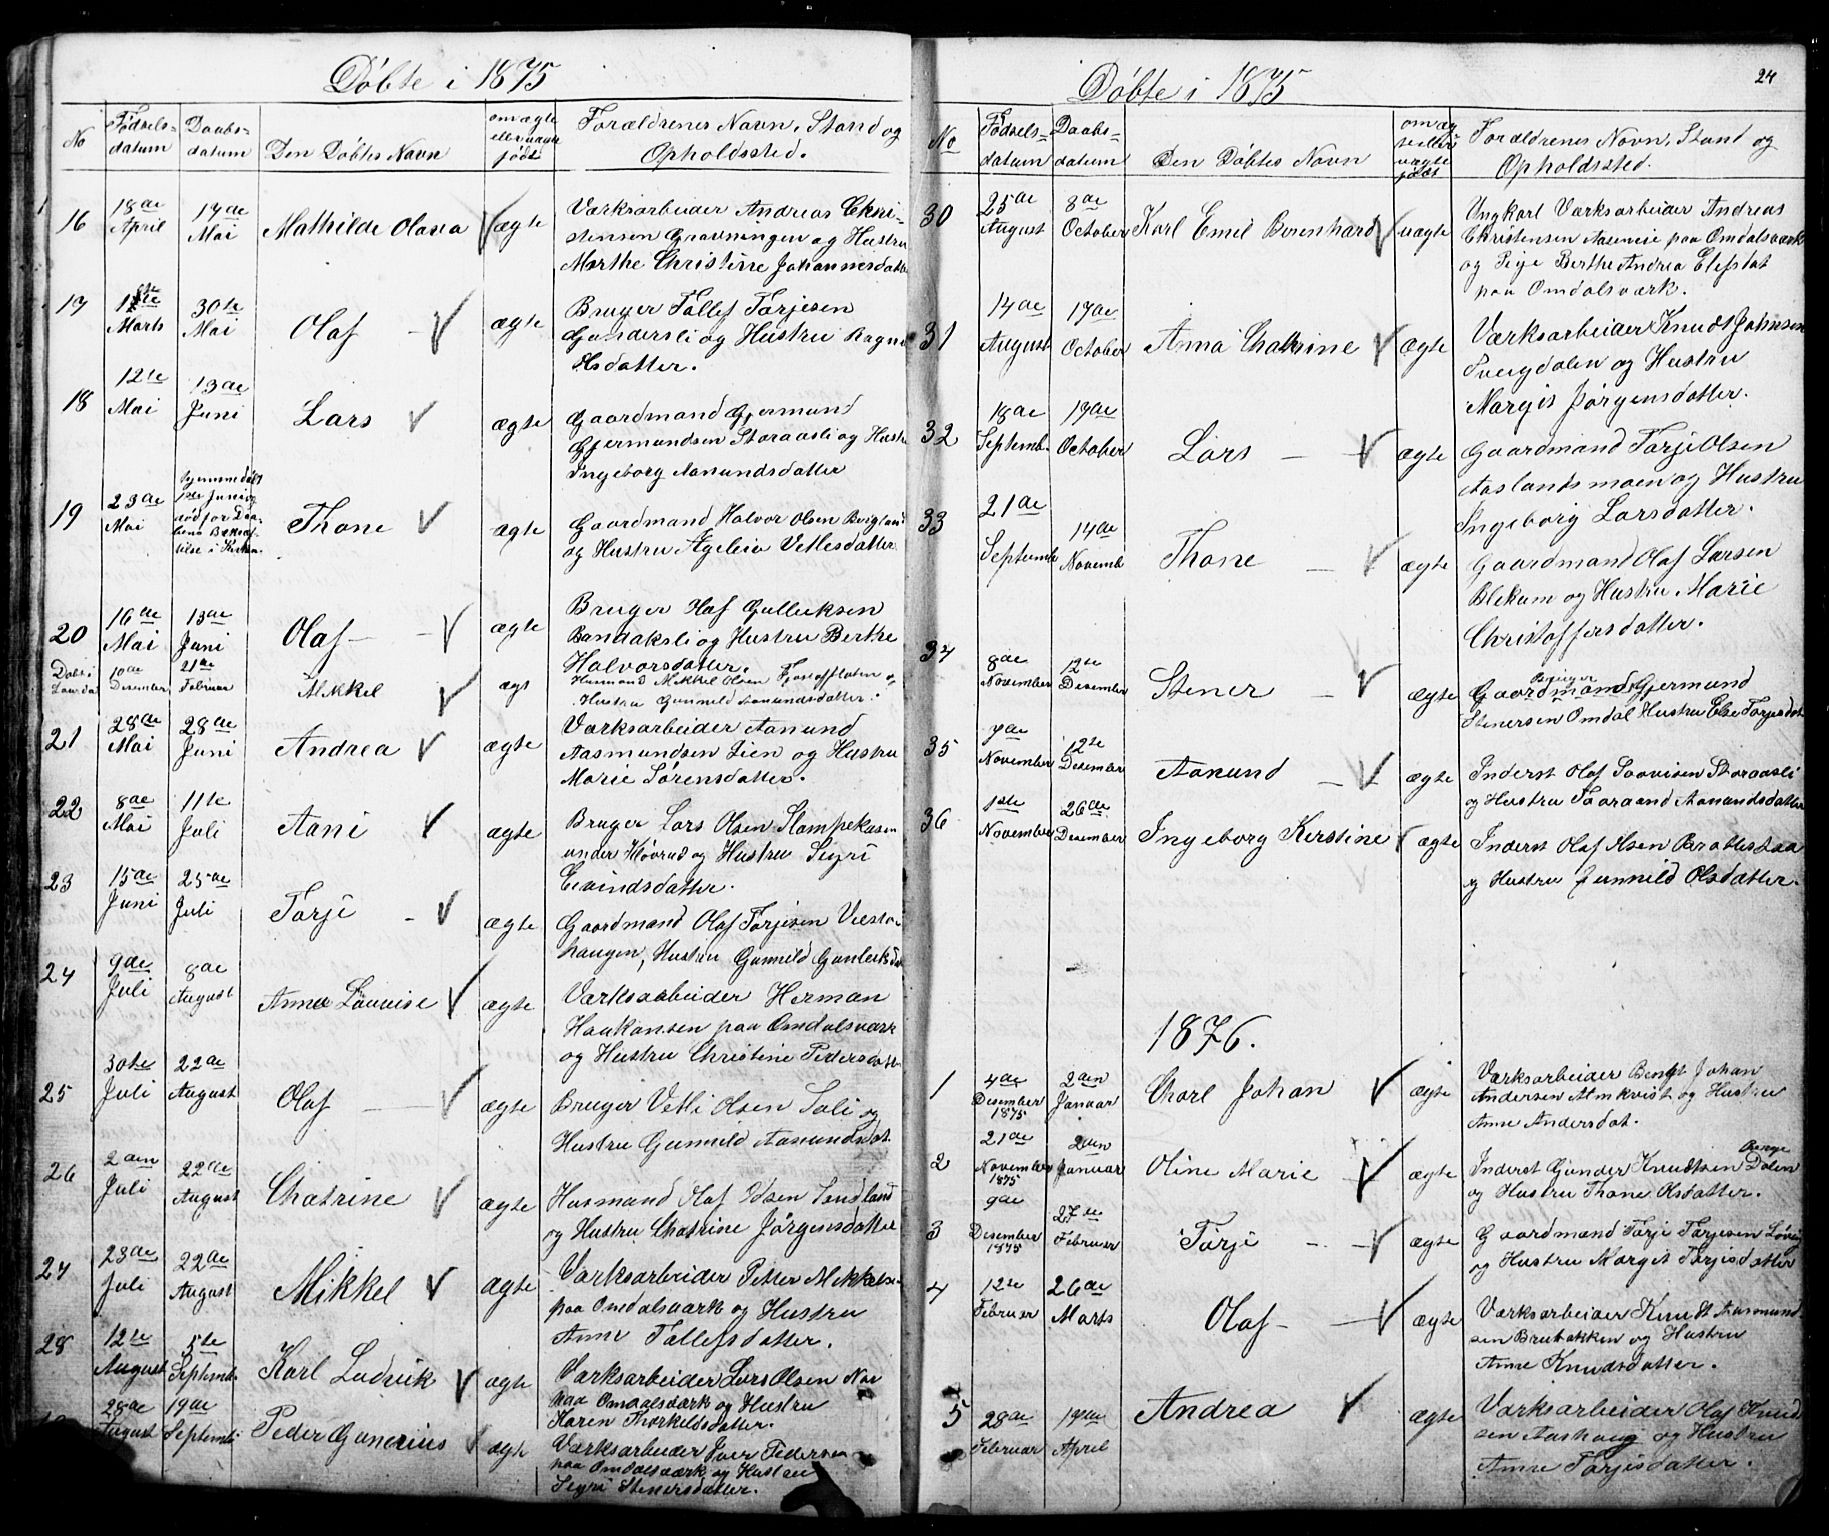 Døbte i 1875
No
Fødsels-
datum
Daabs-
datum
Den Døbtes Navn
om ægte
eller uægte
født
Forældrenes Navn, Stand og
Opholdssted.
16
18de
April
17de
Mai
Mathilde Olava
ægte
Værksarbeider Andreas Chri-
stensen Gravningen og Hustru
Marthe Christine Johannesdatter
17
Marts
30te
Mai
Olaf
ægte
Bruger Tallef Torjesen
Gundersli og Hustru Ragne
Olsdatter.
18
12te
Mai
13de
Juni
Lars
ægte
Gaardmand Gjermund
Gjermundsen Storaasli og Hustr
Ingeborg Aanundsdatter
19
23de
Mai
hjemmedøbt
1ste Juni og
død før Daa-
bens Bekræf-
telse i Kirken.
Thone
ægte
Gaardmand Halvor Olsen
og Hustru Vetlesdatter
20
16de
Mai
13de
Juni
Olaf
ægte
Bruger Olaf Gulleiksen
Bandaksli og Hustru Berthe
Halvorsdatter.
Døbt i
10de
Desember
21de
Februar
Mikkel
ægt
Husmand Mikkel Olsen
Hustru Gunnild Aanundsdatter.
21
28de
Mai
28de
Juni
Andrea
ægte
Værksarbeider Aanund
Aasmundsen Lien og Hustru
Marie Sørensdatter.
22
8de
Mai
11te
Juli
Aani
ægte
Bruger Lars Olsen Slompekasen
under Høvrud og Hustru Sigri
Eivindsdatter.
23
15de
Juni
25de
Juli
Torje
ægte
Gaardmand Olaf Torjesen
haugen, Hustru Gunnild Gunleiksdat
24
9de
Juli
8de
August
Anna Lovise
ægte
Værksarbeider Herman
Haakansen paa Omdalsværk
og Hustru Christine Pedersdatt
25
30te
Juli
22de
August
Olaf
ægte
Bruger Vetli Olsen Sali og
Hustru Gunnild Aanundsdat.
26
2den
Juli
22de
August
Chatrine
ægte
Husmand Olaf Olsen Sundland
og Hustru Chatrine Jørgensdatter
27
23de
Juli
22de
August
Mikkel
ægte
Værksarbeider Petter Mikkelse
paa Omdalsværk og Hustru
Anne Tallefsdatter.
28
12te
August
5te
Septemb.
Karl Ludvik
ægte
Værksarbeider Lars Olsen
paa Omdalsværk og Hustru
Karen Thorkildsdatter.
28de
August
19de
Septemb.
Peder Gunerius
ægte
Værksarbeider Iver Pedersen
paa Omdalsværk og Hustru
Sigri Stenersdatter.
24
Døbte i 1875
No
Fødsels-
datum
Daabs-
datum
Den Døbtes Navn
om æg
te eller
uægte
født
Forældrenes Navn, Stand og
Opholdssted.
30
25de
August
8de
October
Karl Emil Berenhard
uægte
Ungkarl Værksarbeider Andreas
Christensen Aaseneie paa Omdalsværk
og Pige Berthe Andrea Elefsdat
paa Omdalsværk.
31
14de
August
17de
October
Anna Chatrine
ægte
Værksarbeider Knudt Johnsen
Tveigdalen og Hustru
Margit Jørgensdatter.
32
18de
Septemb.
17de
October
Lars
ægte
Gaardmand Torje Olsen
Aaslandsmoen og Hustru
Ingeborg Larsdatter.
33
21de
Septemb
14de
Novemb
Thone
ægte
Gaardmand Olaf Larsen
Blekum og Hustru Marie
Christoffersdatter.
34
8de
November
12te
Desember
Stener
ægte
Gaardmand Gjermund
Stenersen Omdal Hustru Else Torjesdat
35
7de
November
12te
Desember
Aanund
ægte
Inderst Olaf Saavisen Storaasli
og Hustru Taaraand Aanundsdatter
36
1ste
November
26de
Desember
Ingeborg Kerstine
ægte
Inderst Olaf Olsen
og Hustru Gunnild Olsdatter.
1876.
1
4de
Desember
1875
2den
Januar
Charl Johan
ægte
Værksarbeider Bengt Johan
Andersen Almkvist og Hustru
Anne Andersdat.
2
21de
November
1875
2den
Januar
Oline Marie
ægte
Inderst Gunder Knudtsen Dalen
og Hustru Thone Olsdatter.
3
9de
Desember
1875
27de
Februar
Torje
ægte
Gaardmand Torje Torjesen
og Hustru Margit Torjisdatter
4
12te
Februar
26de
Marts
Olaf
ægte
Værksarbeider Knudt Aasmund
sen Brubakken og Hustru
Anne Knudsdatter.
5
28de
Februar
17de
April
Andrea
ægte
Værksarbeider Olaf Knud
sen Aashaug og Hustru
Anne Torjisdatter.